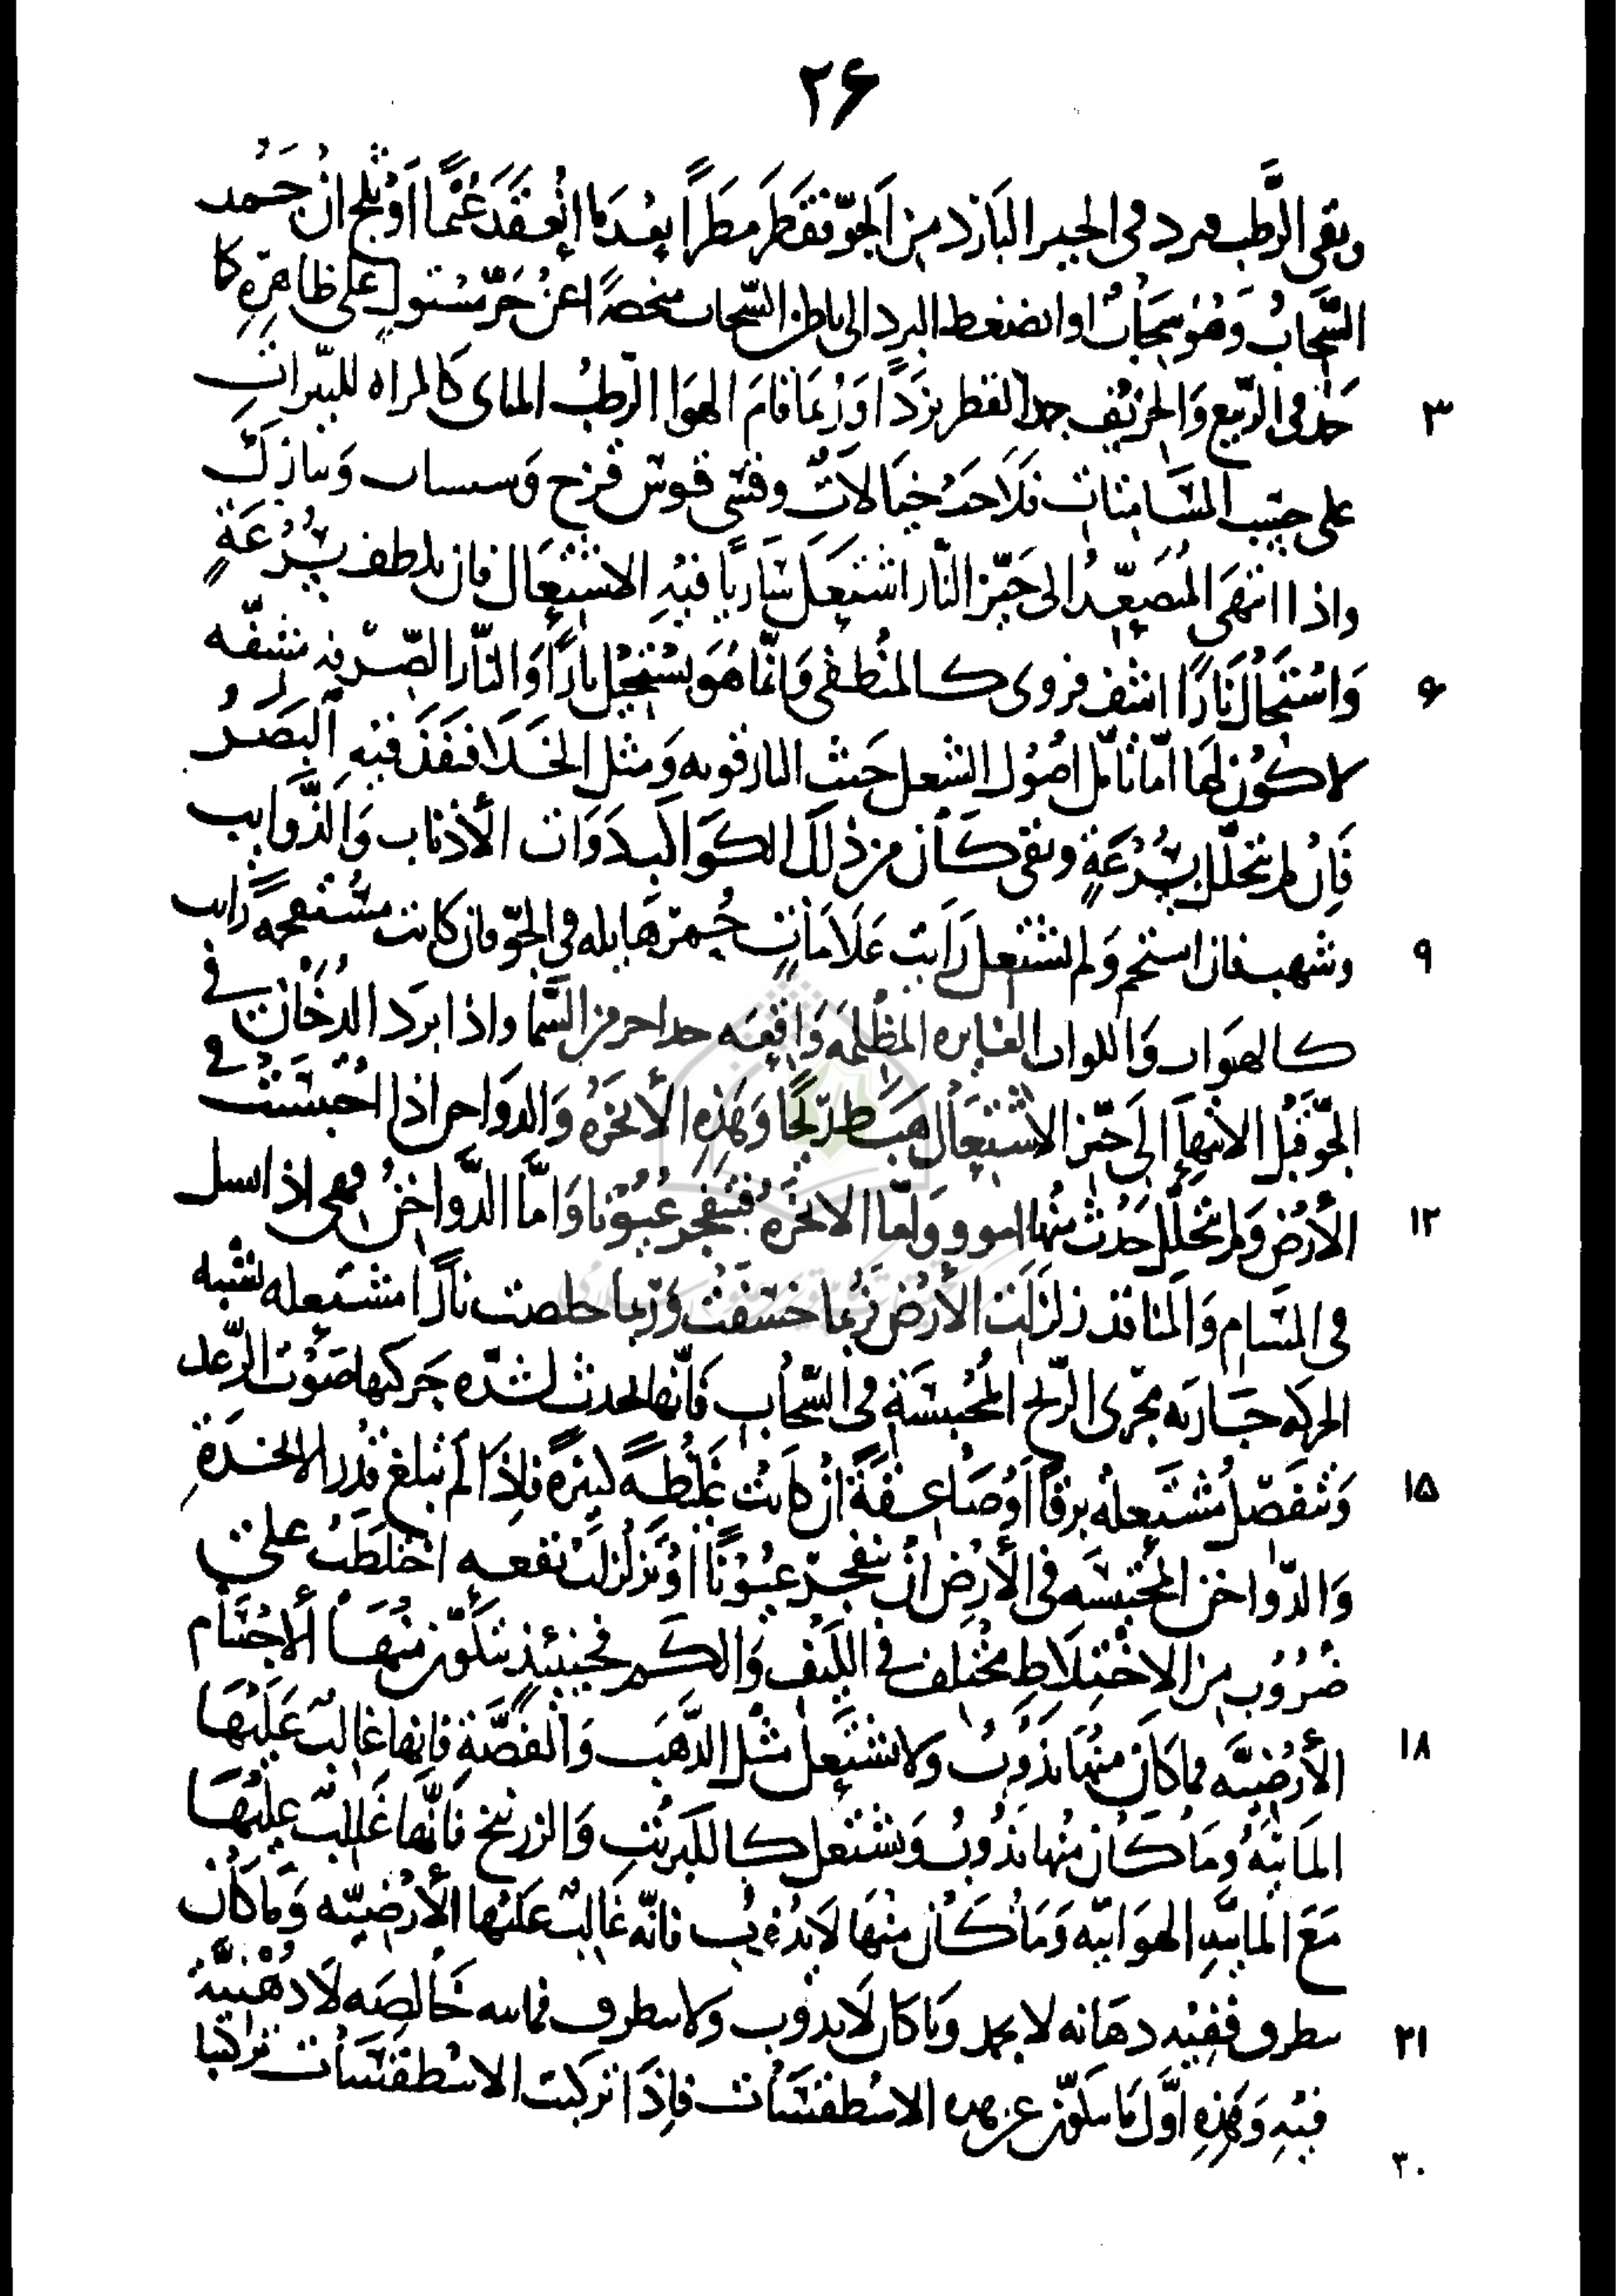 ٢۶
وبقى الرطب فبرد فى الحيز البارد من الجوّ فقطر مطراً بعد ما انعقد غيماً او ثلج ان جمد
السّحاب وهو سحاب او انضغط البرد الى باطن السّحاب منحصراً عن حرّ مستول على ظاهره كما
٣
فى الرّبيع والخريف جمد القطر برَداً وربّما قام الهوا الرّطب المائى كالمراه للنيّرات
على حسب المسامتات فلاحت خيالات وقسى قوس قزح وشمسيات ونيازك
واذا انتهى المُصَعّد الى حَيّز النّار اشتعل ساريًا فيه الاشتعال فان تلطف بسُرعَةٍ
۶
وَاستحال نارًا اشف فروى كالمنطفى وَانّما هُوَ يستحيل نارًا وَالنّار الصّرفه مشفّه
لا لون لها امّا تأمّل اصُول الشعل حَيث النار قويه وَمثل الخَلا فنفذ فيهِ البَصَرُ
فَان لم يتحلّل بسُرعَةٍ وبقى كان من ذلك الكوَاكب ذوات الأذناب وَالذّوايب
٩
وشهب فان استحجر وَلم يشتعل رَايت عَلامات حُمر هايله فى الجوّ فان كانت مستفحمه رايت
كالهوات وَالكوات الغايره المظلمَه وَاقعَه من السّما واذا برَد الدّخان فى
الجوّ قبل الانتهاء إلى حيّز الاشتعال هبط ريحًا وَهَذِهِ الأبخره وَالدواخن اذا احتبسَت فى
١٢
الأرض وَلم تتحلّل حدث منها امور وَامّا الابخره فتنفجر عُيونا وَامّا الدّواخن فهى اذا
فى المسَام وَالمنافذ زلزلت الأرض فربما خسفت وَربما خلصت نارًا مشتعله لشبه
الحركه جَاريه مجرى الرّيح المُحتبسَةِ فى السّحاب فانّها تحدث لشدّه حركتها صَوت الرّعد
١۵
وَتنفصل مُشتَعله برقاً اوصَاعقةً ان كانت غليظهً كبيرهً فاذا لم تبلغ قدر الابخرَةِ
وَالدّواخن المُحتبسَه فى الأرض ان تنفجر عيونًا او تزلزلت بقعه اختلطَت على
ضرُوب من الاختلاطِ مختلف فى الكيف وَالكم فحينئذ تتكوّن منهَا الأجسَام
١٨
الأرضيّه فما كان منها يذُوب وَلا يشتعل مثل الذّهَب وَالفضّةِ فانها غالب عَليهَا
المائيّه وَما كان منها يذوب ويشتعل كالكبريت وَالزرنيخ فانّها غالب عليهَا
مَعَ المائيّهِ الهوَائيّه وَمَا كان منهَا لايذُوب فانّه غَالب علَيها الأرضيّه وَما كان
٢١
يتطرق ففيه دهَانه لا يجمد وَما كان لايذوب ولا يتطرق فمائيه خالصَه لا دُهنيّة
فيهِ وَهَذِهِ اوّل ما يتكوّن عن هذه الاسطقسّات فاذا تركبت الاسطقسّات تركيبا
٣٠